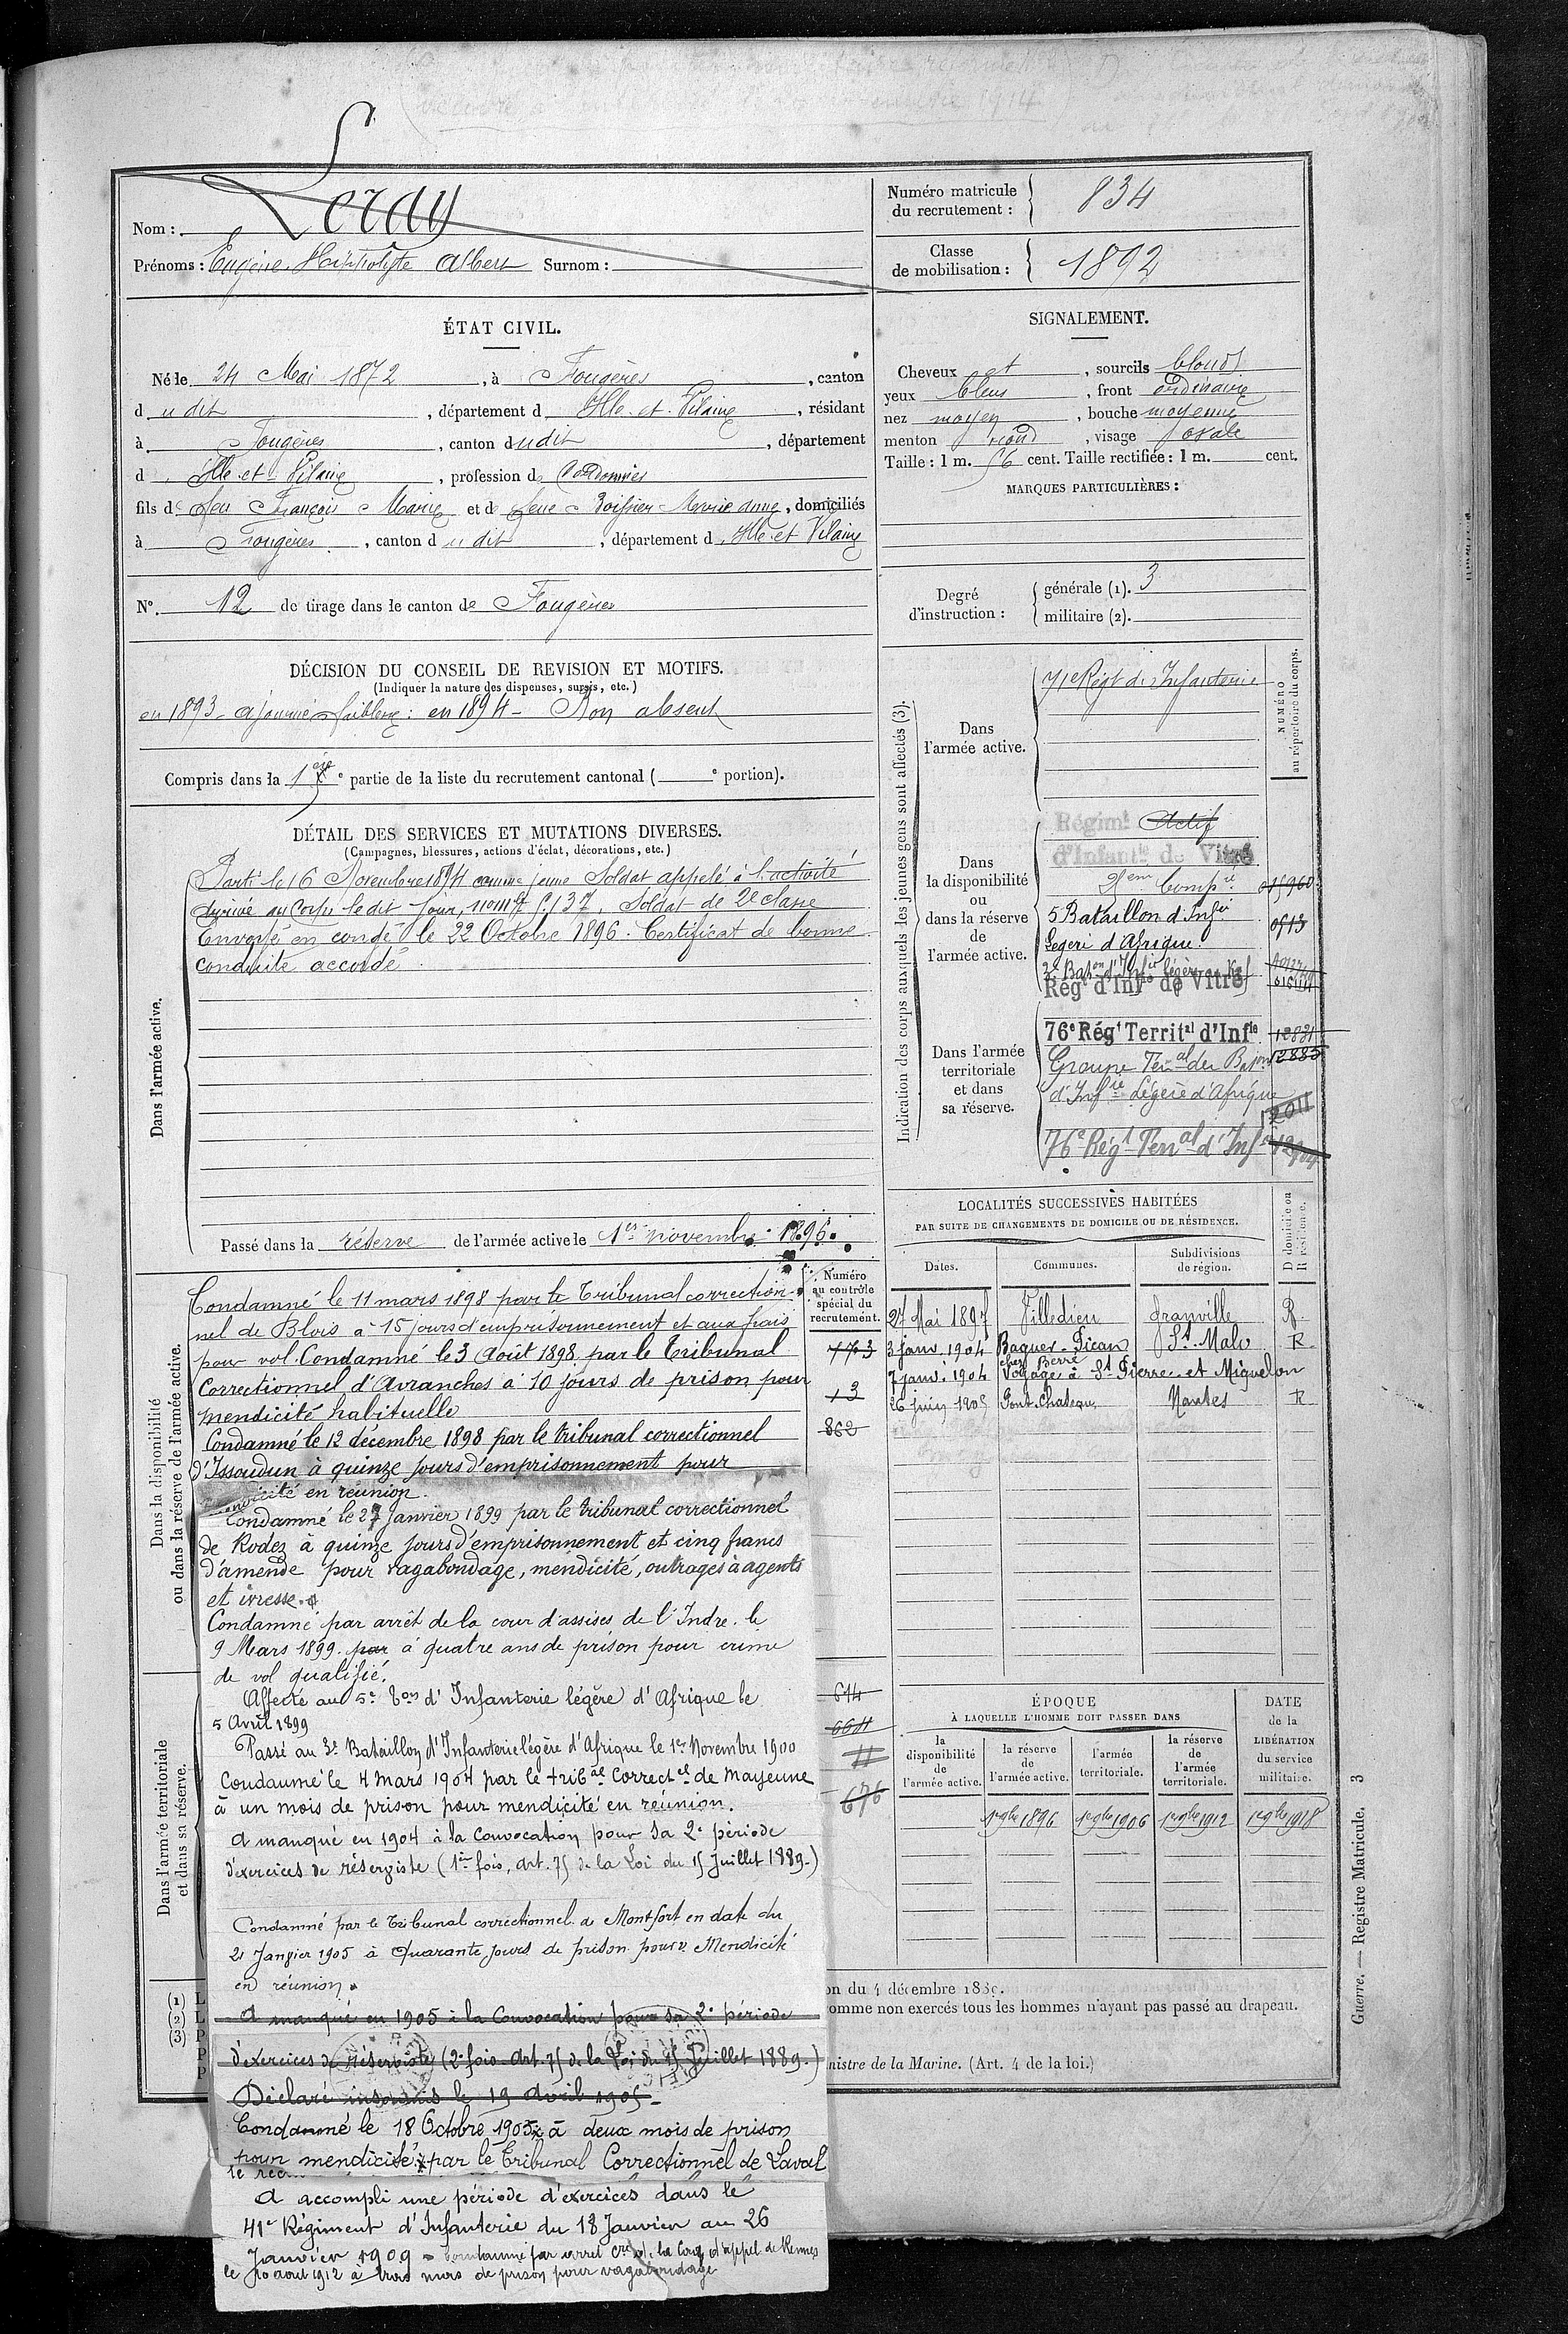 Nom : Leray
Prénoms : Eugène Hippolyte Albert Surnom :
Numéro matricule du recrutement : 834
Classe de mobilisation : 1892
ÉTAT CIVIL.
Né le 24 Mai 1872, à Fougères, canton
dudit, département d'Ille-et-Vilaine, résidant
à Fougères, canton dudit, département
d'Ille-et-Vilaine, profession de Cordonnier
fils de feu François Marie et de feue Boissier Marie Anne, domiciliés
à Fougères, canton dudit, département d'Ille et Vilaine
N° 12 de tirage dans le canton de Fougères
SIGNALEMENT.
Cheveux et, sourcils blonds
yeux bleus, front ordinaire
nez moyen, bouche moyenne
menton rond, visage ovale
Taille : 1 m. 56 cent. Taille rectifiée : 1 m. cent.
MARQUES PARTICULIÈRES :
Degré d'instruction : générale (1). 3
militaire (2).
DÉCISION DU CONSEIL DE REVISION ET MOTIFS.
(Indiquer la nature des dispenses, sursis, etc.)
en 1893 - ajourné faiblesse : en 1894 - Bon absent
Compris dans la 1ère partie de la liste du recrutement cantonal ( e portion).
DÉTAIL DES SERVICES ET MUTATIONS DIVERSES.
(Campagnes, blessures, actions d'éclat, décorations, etc.)
Dans l'armée active.
Parti le 16 Novembre 1894 comme jeune Soldat appelé à l'activité
Arrivé au Corps le dit jour, Soldat de 2e classe
Envoyé en congé le 22 Octobre 1896. Certificat de bonne
conduite accordé
Passé dans la réserve de l'armée active le 1er novembre 1896.
Indication des corps auxquels les jeunes gens sont affectés (3).
NUMÉRO au répertoire du corps.
Dans l'armée active.
71e Régt d'Infanterie
Dans la disponibilité ou dans la réserve de l'armée active.
Régimt Actif
d'Infantie de Vitré
5 Bataillon d'Infie
Légère d'Afrique
3e Baton d'Infie légère
Régt d'Infie de Vitré
Dans l'armée territoriale et dans sa réserve.
76e Régt Territal d'Infie 12831
Groupe Terral des Batons 12885
d'Infie Légère d'Afrique
76e Régt Terral d'Infie
LOCALITÉS SUCCESSIVES HABITÉES
PAR SUITE DE CHANGEMENTS DE DOMICILE OU DE RÉSIDENCE.
Dates. Communes. Subdivisions de région. D domicile ou R résidence.
27 Mai 1897 Villedieu Granville R.
3 janv. 1904 Baguer-Pican St Malo R
chez Berré
7 janv. 1904 Voyage à St Pierre et Miquelon
26 juin 1905 Pont-Chateau Nantes R
Dans la disponibilité ou dans la réserve de l'armée active.
Numéro au contrôle spécial du recrutement.
13
862
Condamné le 11 mars 1898 par le Tribunal correction-
nel de Blois à 15 jours d'emprisonnement et aux frais
pour vol. Condamné le 3 Août 1898 par le Tribunal
Correctionnel d'Avranches à 10 jours de prison pour
mendicité habituelle
Condamné le 12 décembre 1898 par le tribunal correctionnel
d'Issoudun à quinze jours d'emprisonnement pour
mendicité en réunion.
Condamné le 27 Janvier 1899 par le tribunal correctionnel
de Rodez à quinze jours d'emprisonnement et cinq francs
d'amende pour vagabondage, mendicité, outrages à agents
et ivresse.
Condamné par arrêt de la cour d'assises de l'Indre. le
9 Mars 1899. par à quatre ans de prison pour crime
de vol qualifié.
Affecté au 5e Bons d'Infanterie légère d'Afrique le
5 Avril 1899
Passé au 3e Bataillon d'Infanterie légère d'Afrique le 1er Novembre 1900
Condamné le 4 Mars 1904 par le tribal Correctel de Mayenne
à un mois de prison pour mendicité en réunion.
A manqué en 1904 à la Convocation pour sa 2e période
d'exercices de réserviste (1ère fois, art. 75 de la Loi du 15 Juillet 1889.)
Condamné par le Tribunal correctionnel de Montfort en date du
21 Janvier 1905 à Quarante jours de prison pour Mendicité
en réunion.
A manqué en 1905 à la Convocation pour sa 2e période
d'exercices de réserviste (2e fois Art. 75 de la Loi du 15 Juillet 1889.)
Déclaré insoumis le 19 Avril 1905-
Condamné le 18 Octobre 1905 à deux mois de prison
pour mendicité par le Tribunal Correctionnel de Laval
A accompli une période d'exercices dans le
41e Régiment d'Infanterie du 18 Janvier au 26
Janvier 1909 = Condamné par arrêt de la Cour d'appel de Rennes
le 10 août 1912 à trois mois de prison pour vagabondage
Dans l'armée territoriale et dans sa réserve.
614
664
11
676
ÉPOQUE
À LAQUELLE L'HOMME DOIT PASSER DANS
DATE de la LIBÉRATION du service militaire.
la disponibilité de l'armée active. la réserve de l'armée active. l'armée territoriale. la réserve de l'armée territoriale.
1er 9bre 1896 1er 9bre 1906 1er 9bre 1912 1er 9bre 1918
(1) L
(2) L
(3) P
P
P
on du 4 décembre 1889.
comme non exercés tous les hommes n'ayant pas passé au drapeau.
nistre de la Marine. (Art. 4 de la loi.)
Guerre. — Registre Matricule. 3